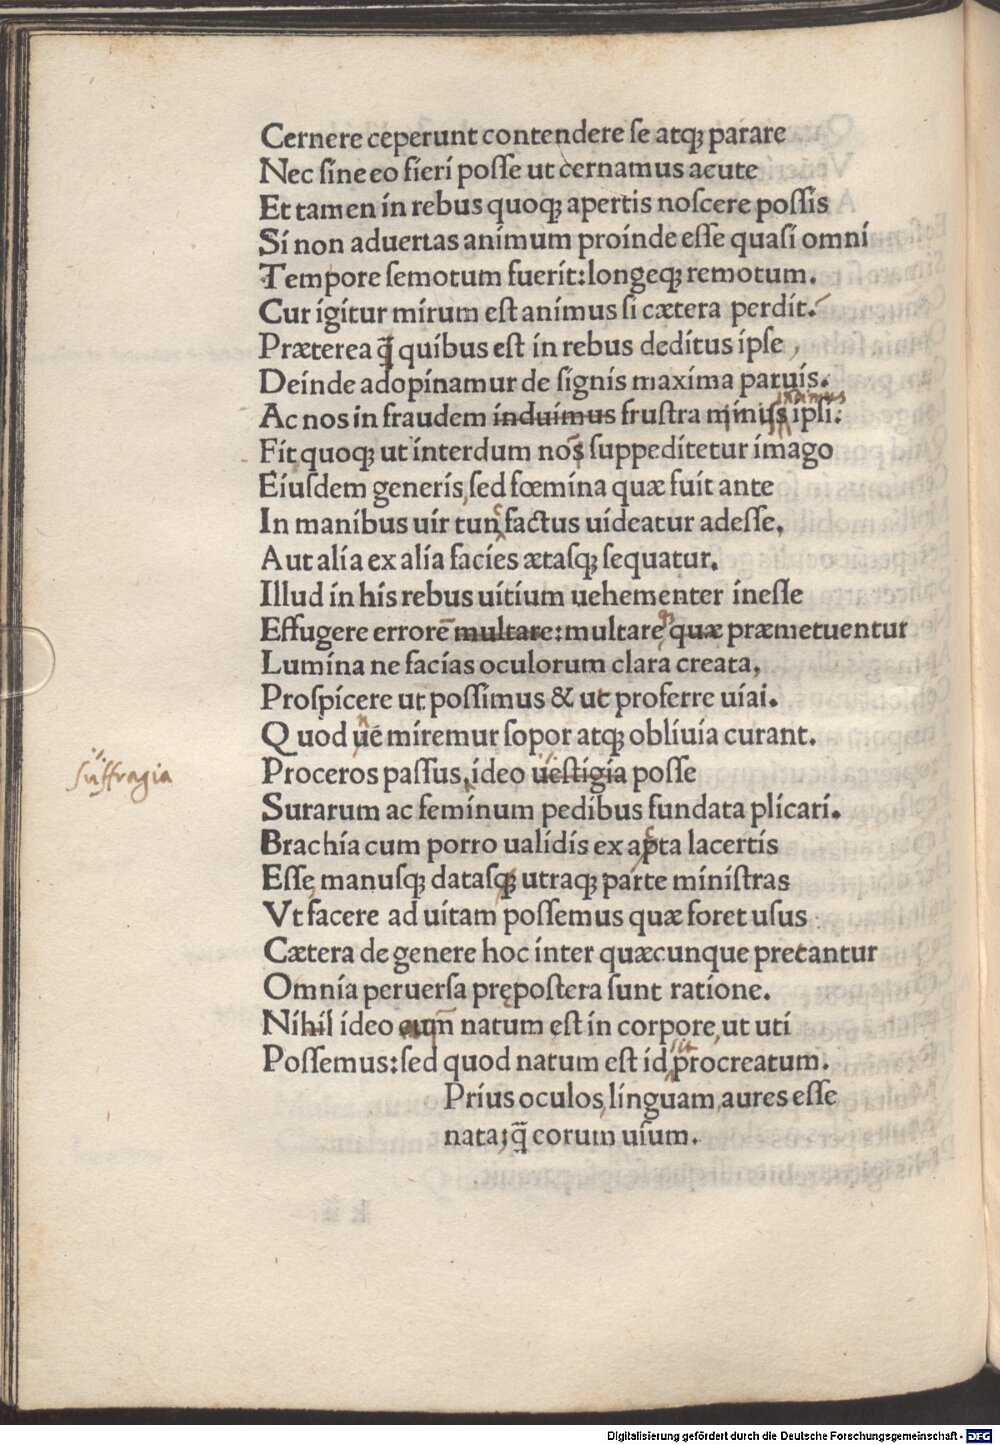 Cernere ceperunt contendere ſe atqꝫ parare
Nec ſine eo fieri poſſe ut cernamus acute
Et tamen in rebus quoqꝫ apertis noſcere poſſis
Si non aduertas animum proinde eſſe quaſi omni
Tempore ſemotum fuerit: longeqꝫ remotum.
Cur igitur mirum eſt animus ſi cætera perdit.
Præterea q̃ quibus eſt in rebus deditus ipſe,
Deinde adopinamur de ſignis maxima paruis.
inimus
Ac nos in fraudem induimus fruſtra minus ipſi:
Fit quoqꝫ ut interdum nõs ſuppeditetur imago
Eiuſdem generis, ſed fœmina quæ fuit ante
In manibus uir tun factus uideatur adeſſe.
Aut alia ex alia facies ætaſqꝫ ſequatur.
Illud in his rebus uitium uehementer ineſſe
Effugere errorē multare: multare quæ præmetuentur
Lumina ne facias oculorum clara creata,
Proſpicere ut poſſimus & ut proferre uiai.
Quod ue miremur ſopor atqꝫ obliuia curant.
ſuffragia
Proceros paſſus, ideo ueſtigia poſſe
Surarum ac feminum pedibus fundata plicari.
Brachia cum porro ualidis ex apta lacertis
Eſſe, manuſqꝫ dataſqꝫ utraqꝫ parte miniſtras
Vt facere ad uitam poſſemus quæ foret uſus
Cætera de genere hoc inter quæcunque precantur
Omnia peruerſa prępoſtera ſunt ratione.
Nihil ideo eum natum eſt in corpore, ut uti
ſit
Poſſemus: ſed quod natum eſt id procreatum.
Prius oculos, linguam, aures eſſe
nata; q̃ corum uſum.
Digitalisierung gefördert durch die Deutsche Forschungsgemeinschaft - DFG